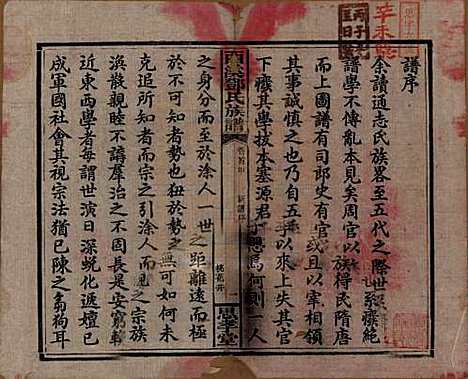 譜序
余讀通志氏族畧至五代之際世系瘝絶
譜學不傳亂本見矣周官以族得民隋唐
而上圖譜有司郎史有官或且以宰相領
其事誠慎之也乃自五 以來上失其官
下穨其學拔本塞源君子 焉何則一人
西 鄧氏族譜
桃花井
一
思孝堂
之身分而至於涂人一世之距離遠而極
於不可知者勢也但勢之無可如何未
克追所知者而宗之引涂人而親之宗族
渙散親睦不講羣治之不固長是安窮
近東西學者每謂世演日深蛻化遞嬗已
成軍國社會其視宗法猶已陳之芻狗耳